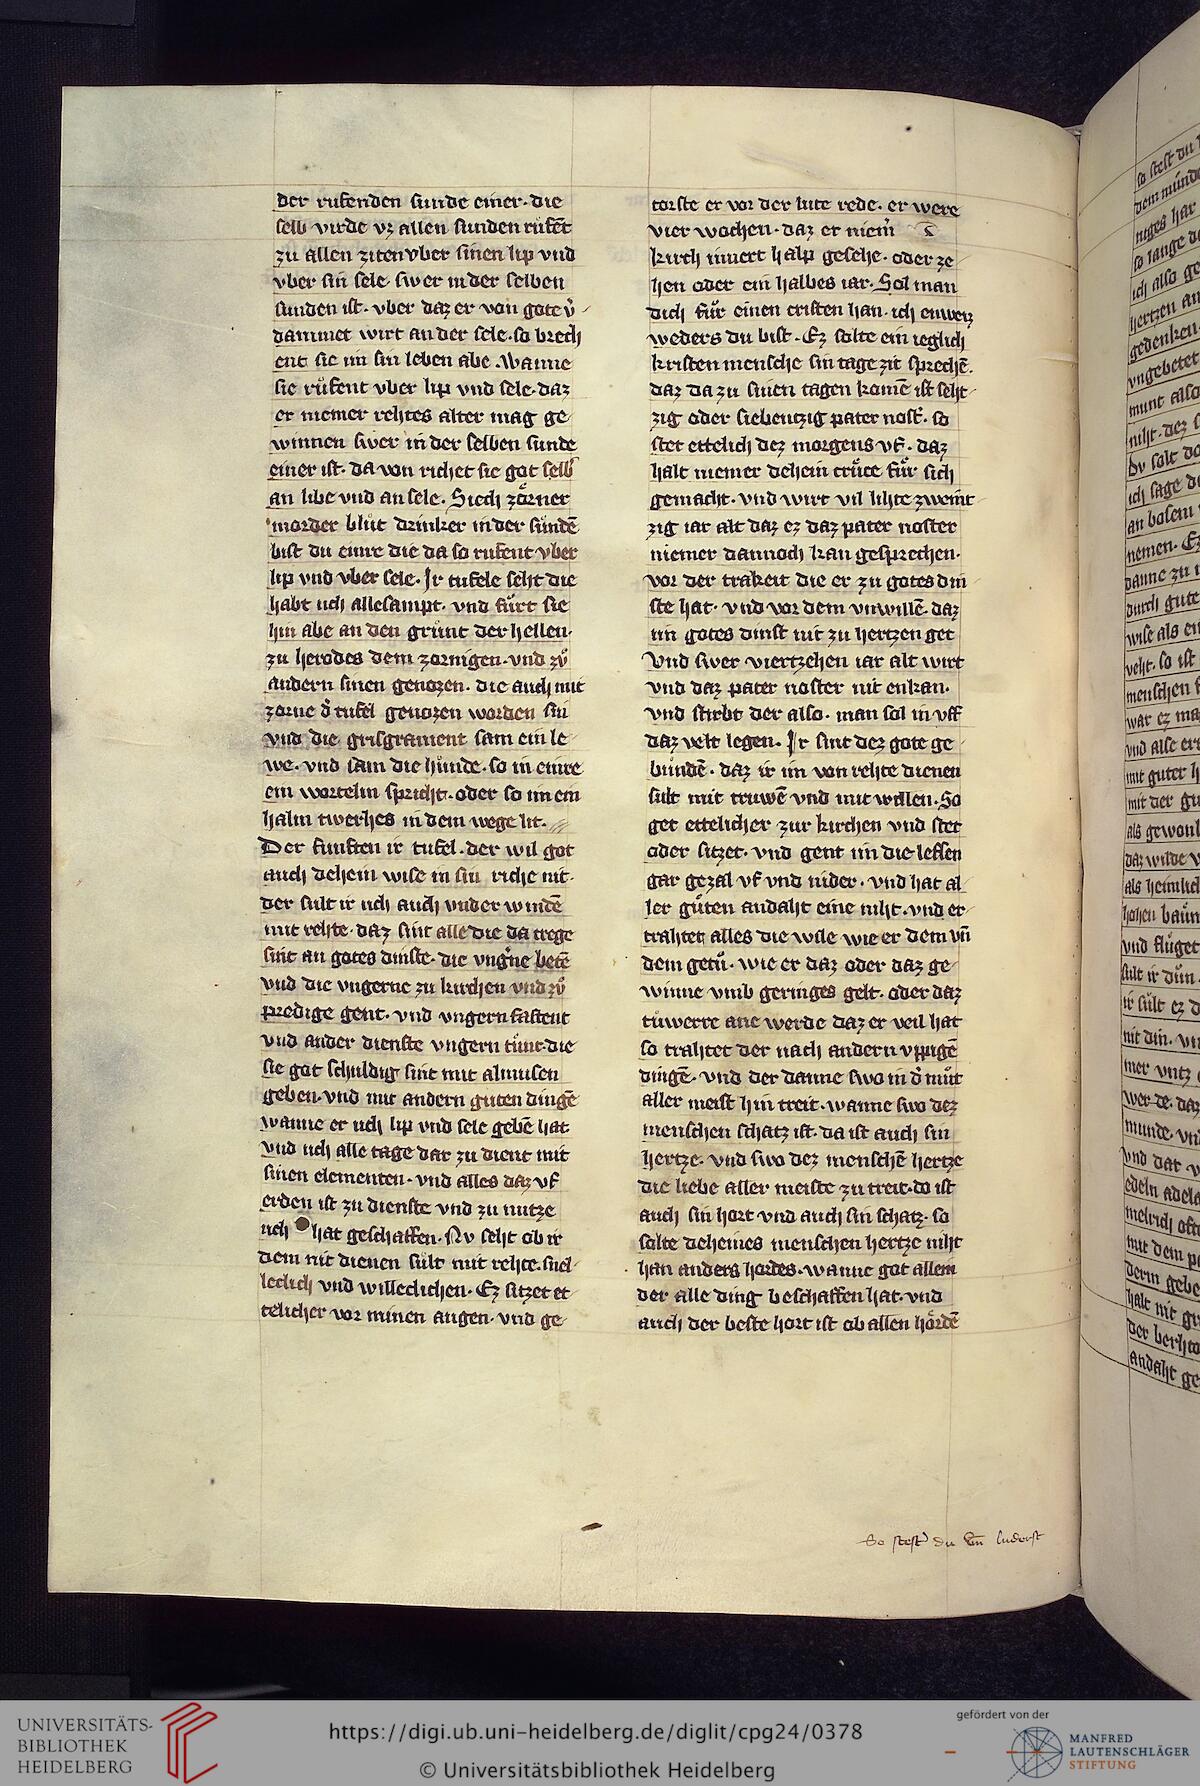 der rufenden sunde einer · die
selb virde vz allen sunden rufēt
zu allen ziten vber sinen lip vnd
vber sin sele · swer in der selben
sunden ist · vber daz er von gote v̓
dammet wirt an der sele · so brech
ent sie im sin leben abe · wanne
sie růfent vber lip vnd sele · daz
er niemer rehtes alter mag ge
winnen swer in der selben sunde
einer ist · da von richet sie got selb
an libe vnd an sele · Siech zörner
morder blůt drinker in der sundē
bist du einre die da so rufent vber
lip vnd vber sele · Ir tufele seht die
habt uch allesampt · vnd fůrt sie
hin abe an den grunt der hellen ·
zu herodes dem zornigen · vnd zů
andern sinen genozen · die auch mit
zorne d̓ tufel genozen worden sin
vnd die grisgrament sam ein le
we · vnd sam die hůnde · so in einre
ein wortelin spricht · oder so im ein
halm twerhes in dem wege lit ·
Der funften ir tufel · der wil got
auch dehein wise in sin riche nit ·
der sult ir uch auch vnder windē
mit rehte · daz sint alle die da trege
sint an gotes dinste · die vng̓ne betē
vnd die vngerne zu kirchen vnd zů
predige gent · vnd vngern fastent
vnd ander dienste vngern tůnt · die
sie got schuldig sint mit almusen
geben · vnd mit andern guten dingē
wanne er uch lip vnd sele gebē hat
vnd uch alle tage dar zu dient mit
sinen elementen · vnd alles daz vf
erden ist zu dienste vnd zu nutze
uch hat geschaffen · Nv seht ob ir
dem nit dienen sult mit rehte · snel
leclich vnd willeclichen · Ez sitzet et
telicher vor minen augen · vnd ge
torste er vor der lute rede · er were
vier wochen · daz er niem̓
kirch inwert halp gesehe · oder ze
hen oder ein halbes iar · Sol man
dich für einen cristen han · ich enweiz
weders du bist · Ez solte ein ieglich
kristen mensche sin tage zit sprechē ·
daz da zu sinen tagen komē ist seht
zig oder siebentzig pater nost̓ · so
stet ettelich dez morgens vf · daz
halt niemer dehein crůce fůr sich
gemacht · vnd wirt vil lihte zweint
zig iar alt daz ez daz pater noster
niemer dannoch kan gesprechen ·
vor der trakeit die er zu gotes din
ste hat · vnd vor dem vnwillē · daz
im gotes dinst nit zu hertzen get
Vnd swer viertzehen iar alt wirt
vnd daz pater noster nit enkan ·
vnd stirbt der also · man sol in vff
daz velt legen · Ir sint dez gote ge
bundē · daz ir im von rehte dienen
sult mit truwē vnd mit willen · So
get ettelicher zur kirchen vnd stet
oder sitzet · vnd gent im die leffen
gar gezal vf vnd nider · vnd hat al
ler gůten andaht eine niht · vnd er
trahtet alles die wile wie er dem vn̄
dem getů · wie er daz oder daz ge
winne vmb geringes gelt · oder daz
tůwerre ane werde daz er veil hat
so trahtet der nach andern vppigē
dingē · vnd der danne swo in d̓ můt
aller meist hin treit · wanne swo dez
menschen schatz ist · da ist auch sin
hertze · vnd swo dez menschē hertze
die liebe aller meiste zu treit · do ist
auch sin hort vnd auch sin schatz · so
solte deheines menschen hertze niht
han anders hordes · wanne got allein
der alle ding beschaffen hat · vnd
auch der beste hort ist ob allen hördē
So stest du vn̄ luderst
UNIVERSITÄTS-
BIBLIOTHEK
HEIDELBERG
https://digi.ub.uni-heidelberg.de/diglit/cpg24/0378
© Universitätsbibliothek Heidelberg
gefördert von der
MANFRED
LAUTENSCHLÄGER
STIFTUNG